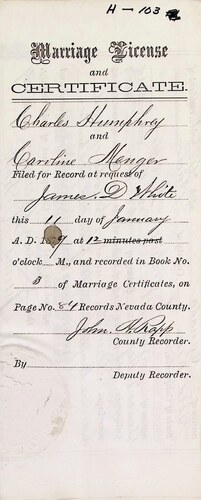 H - 103
Marriage License
and
CERTIFICATE.
Charles Humphrey
and
Caroline Menger
Filed for Record at request of
James D White
this 11 day of January
A. D. 1879 at 12 minutes past
o'clock M., and recorded in Book No.
B of Marriage Certificates, on
Page No. 84 Records Nevada County.
John
County Recorder.
By
Deputy Recorder.